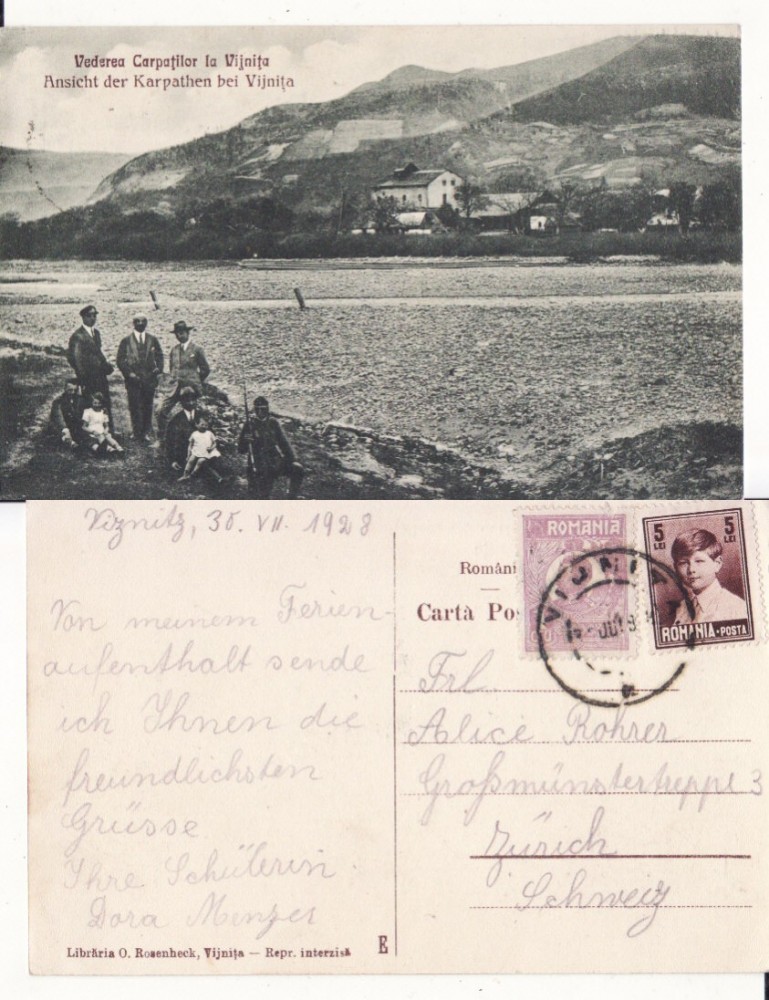 Vederea Carpaților la Vijnița
Ansicht der Karpathen bei Vijnița
Viznitz, 30. VII. 1928
Von meinem Ferien-
aufenthalt sende
ich Ihnen die
freundlichsten
Grüsse
Ihre Schülerin
Dora
Români
Cartă Po
ROMANIA
5 LEI 5 LEI
ROMANIA·POSTA
VIJNIȚ
Frl.
Alice Rohrer
Großmünstertreppe 3
Zürich
Schweiz
Librăria O. Rosenheck, Vijnița — Repr. interzisă
E